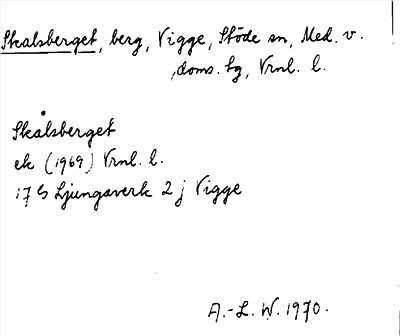 Skalsberget, berg, Vigge, Stöde sn, Med. v.
doms. tg, Vrnl. l.
Skålsberget
ek (1969) Vrnl. l.
17 G Ljungaverk 2 j Vigge
A.-L. W. 1970.